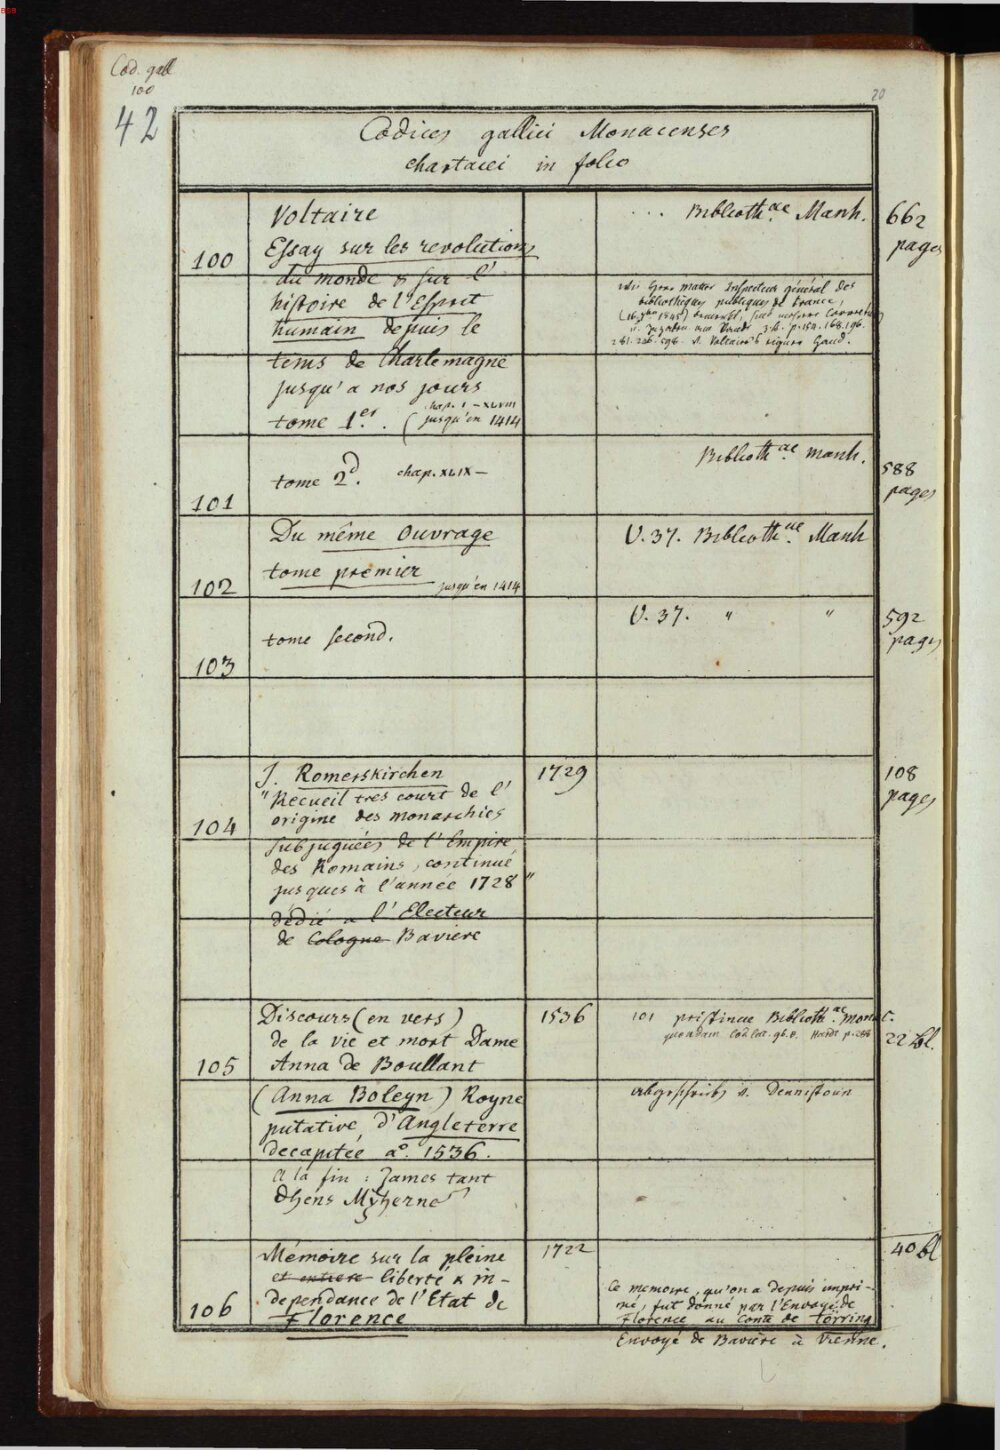 BSB
Cod. gall
100
42
20
Codices gallici Monacenses
chartacei in folio
Voltaire
... Biblioth.ae Manh.
662
pages
100
Essay sur les revolutions
du monde & sur l'
histoire de l'Esprit
humain depuis le
tems de Charlemagne
jusqu'a nos jours
tome 1.er. (chap. I - XLVIII
jusqu'en 1414
Inspecteur général des
bibliothèques publiques de France,
281. 226. 598. v. Voltaire's
101
tome 2d. chap. XLIX –
Biblioth.ae manh.
588
pages
102
Du même Ouvrage
tome premier
jusqu'en 1414
V. 37. Biblioth.ae Manh
103
tome second.
V. 37. " "
592
pages
104
J. Romerskirchen
"Recueil tres court de l'
origine des monarchies
subjuguées de l'Empire
des Romains, continué
jusques à l'année 1728"
dédié a l'Electeur
de Cologne Baviere
1729
108
pages
105
Discours (en vers)
de la vie et mort Dame
Anna de Boullant
(Anna Boleyn) Royne
putative d'Angleterre
decapitée a.o 1536.
A la fin : James tant
dhens Myherne
1536
101 pristinae Biblioth.ae Monac.
quondam Hardt p. 288
22 bl.
v. Dennistoun
106
Mémoire sur la pleine
et entiere liberté & in-
dependance de l'Etat de
Florence
1722
40 bl
Ce memoire, qu'on a depuis impri-
mé, fut donné par l'Envoyé de
Florence au Conte de Törring
Envoyé de Bavière à Vienne.